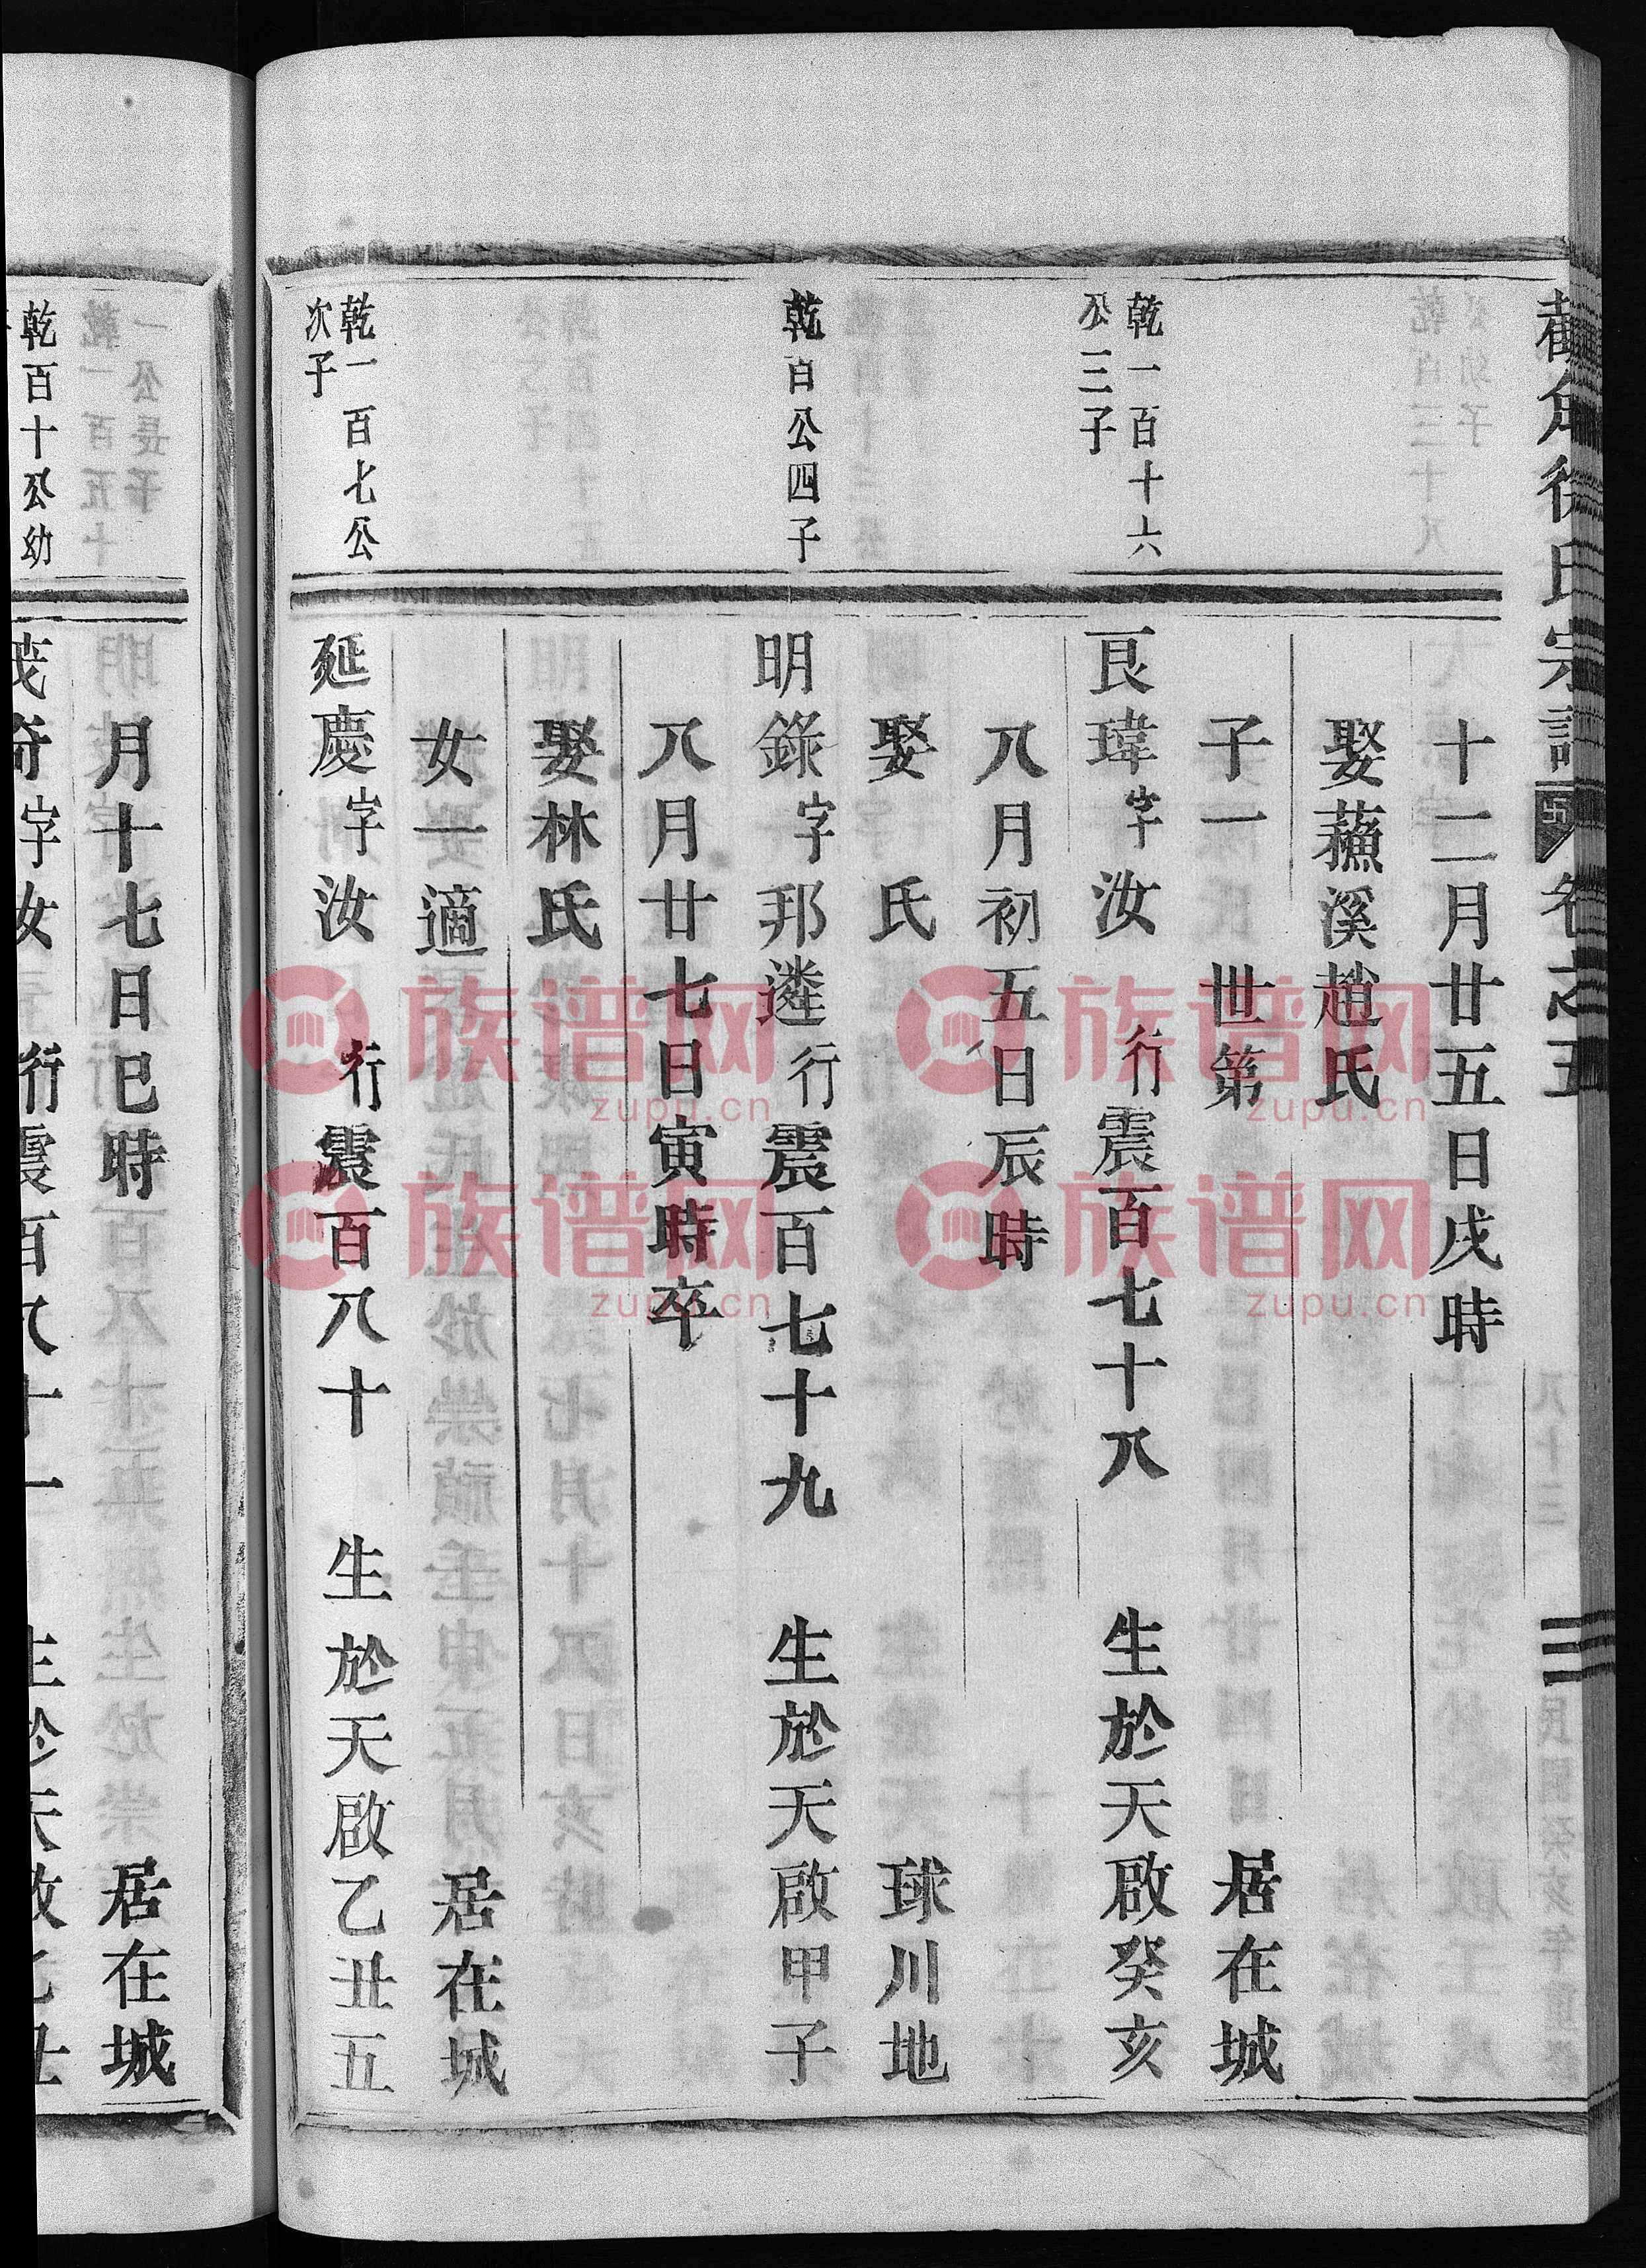 卷之五
十二月廿五日戌時
娶蘓溪趙氏
子一　世第　居在城
乾一百十六
公三子
良瑋字汝　行震百七十八　生於天啟癸亥
八月初五日辰時
娶　氏　球川地
乾百公四子
明錄字邦遴行震百七十九　生於天啟甲子
八月廿七日寅時卒
娶林氏
女一適　居在城
乾一百七公
次子
延慶字汝　行震百八十　生於天啟乙丑五
月十七日巳時　居在城
乾百十公幼
族谱网
zupu.cn
族谱网
zupu.cn
族谱网
zupu.cn
族谱网
zupu.cn